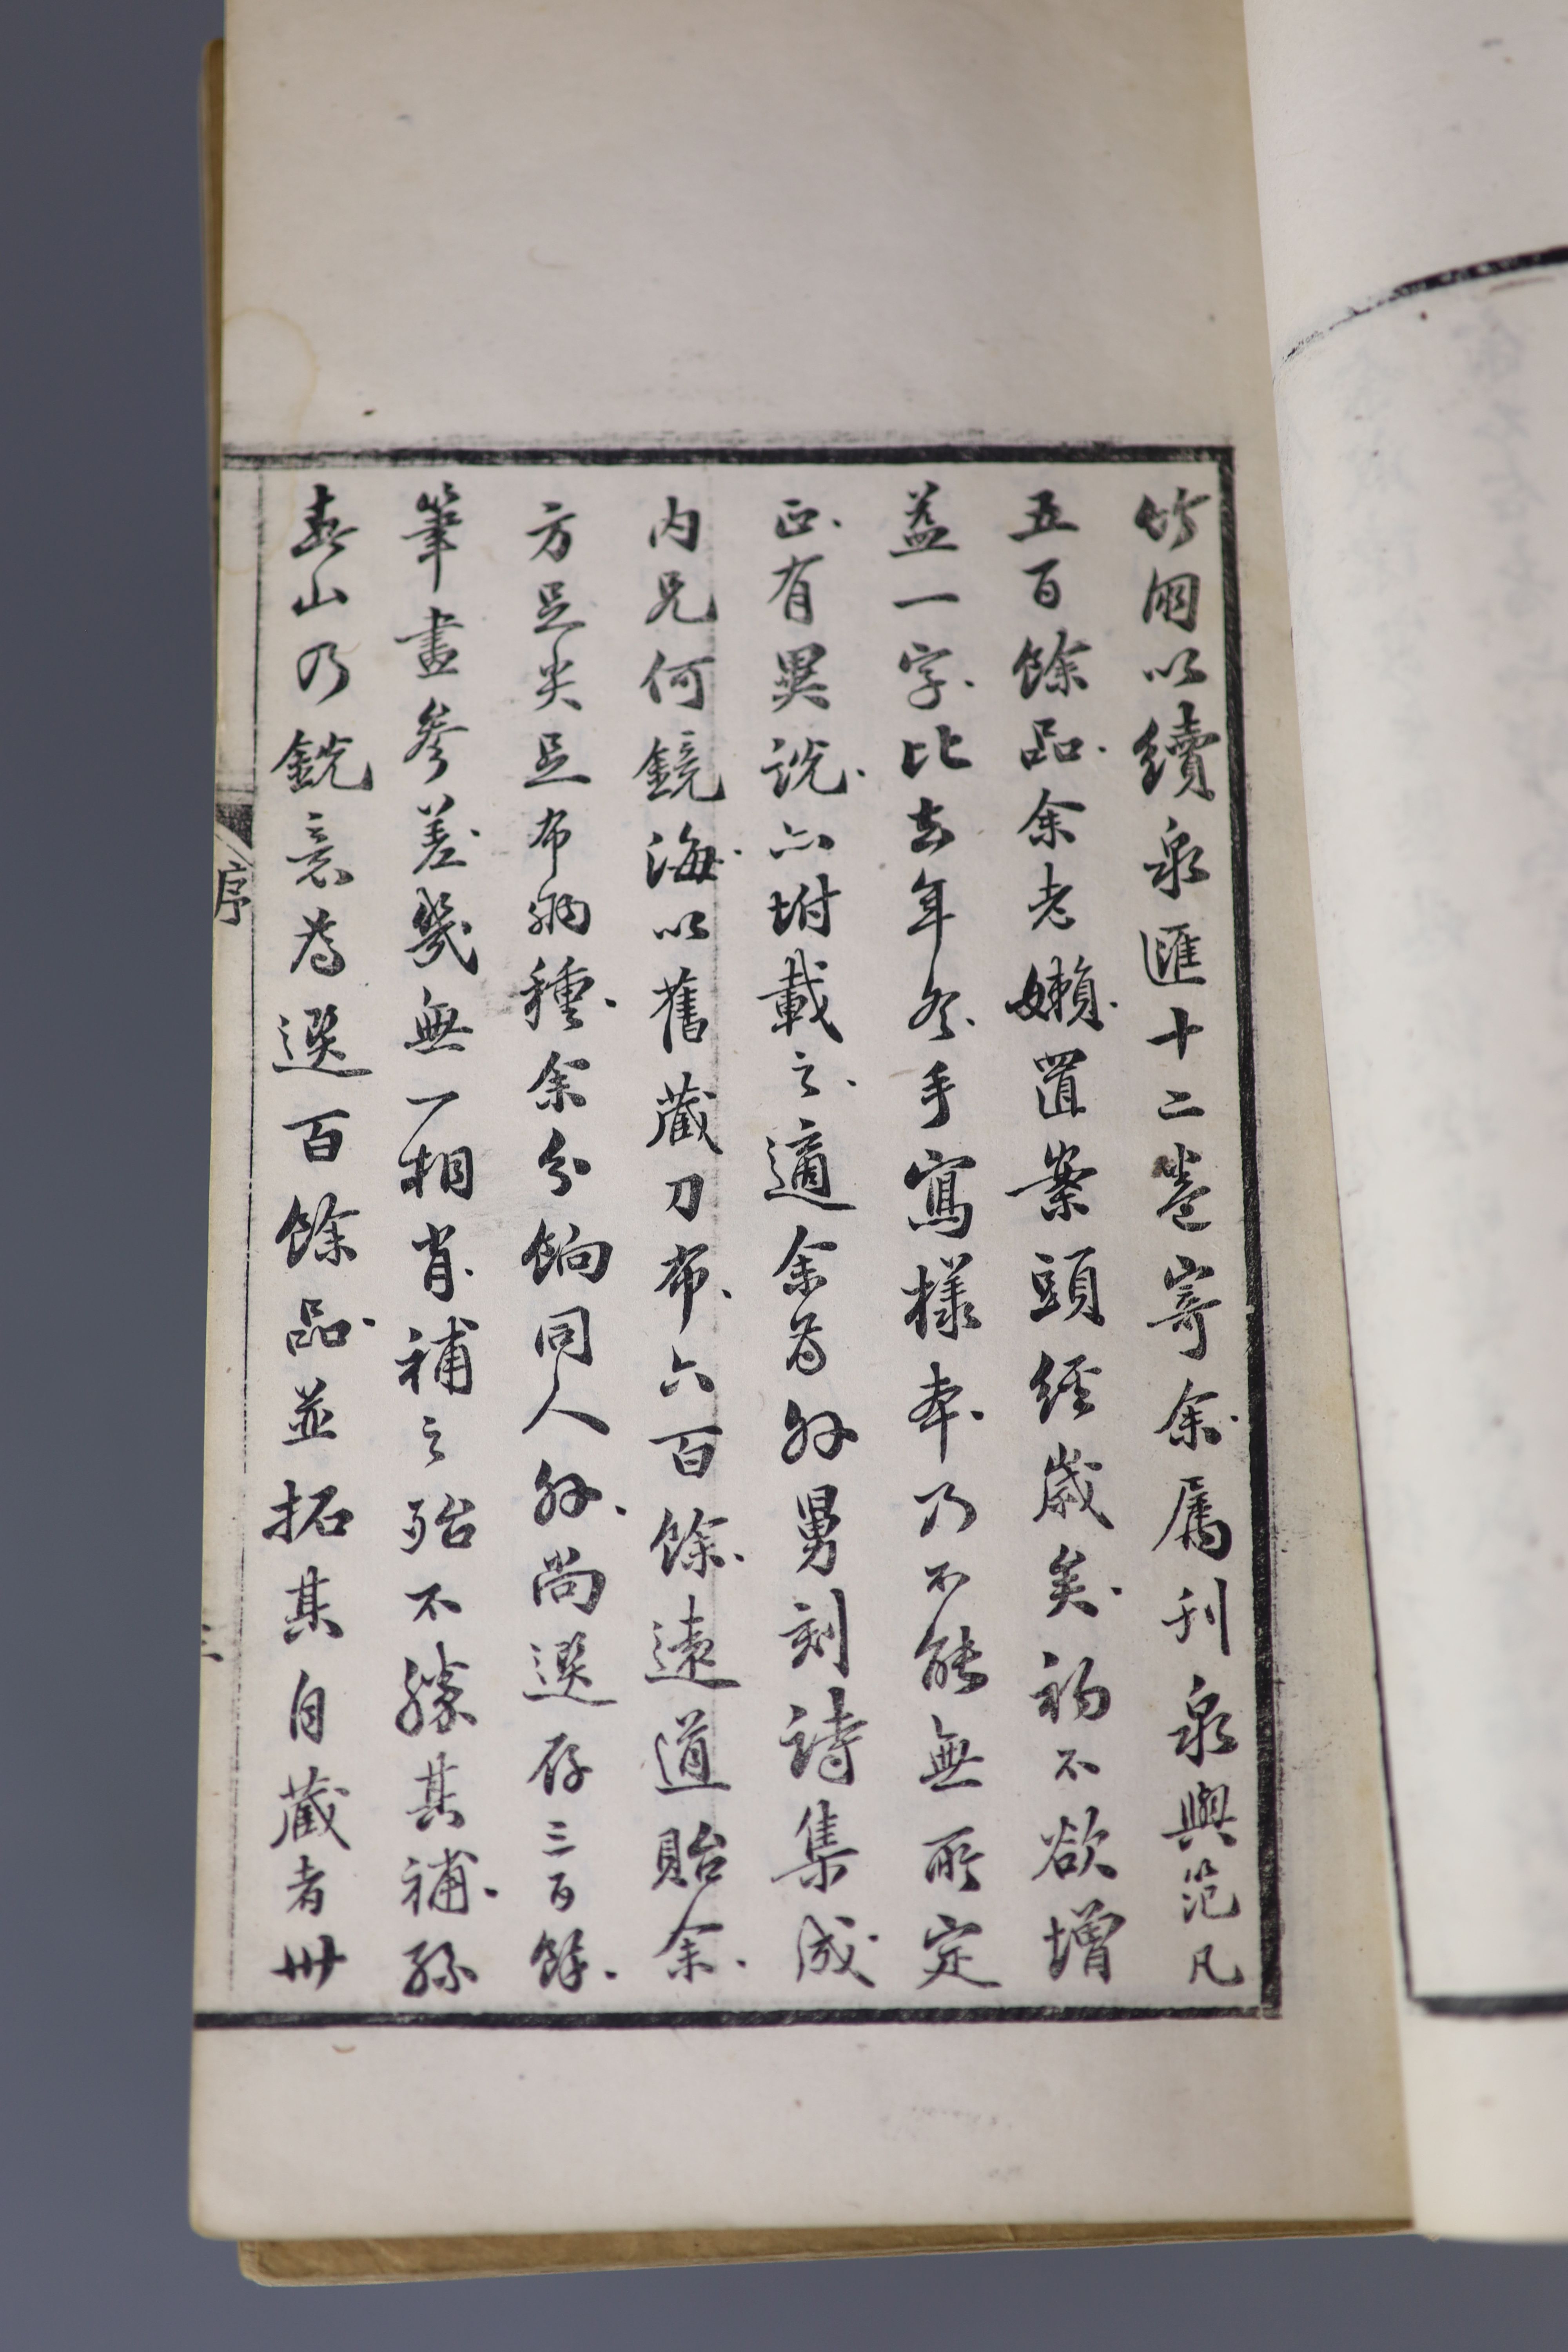 竹朋以續泉匯十二卷寄余屬刊泉與笵凡
五百餘品余老嬾置案頭經歲矣初不欲增
益一字比去年冬手寫樣本乃不能無所定
正有異說亦坿載之適余為外舅刻詩集成
內兄何鏡海以舊藏刀布六百餘遠道貽余
方足尖足布兩種余分餉同人外尚選存三百餘
筆畫參差幾無一相肖補之殆不勝其補孫
春山乃銳意為選百餘品並拓其自藏者卅
序